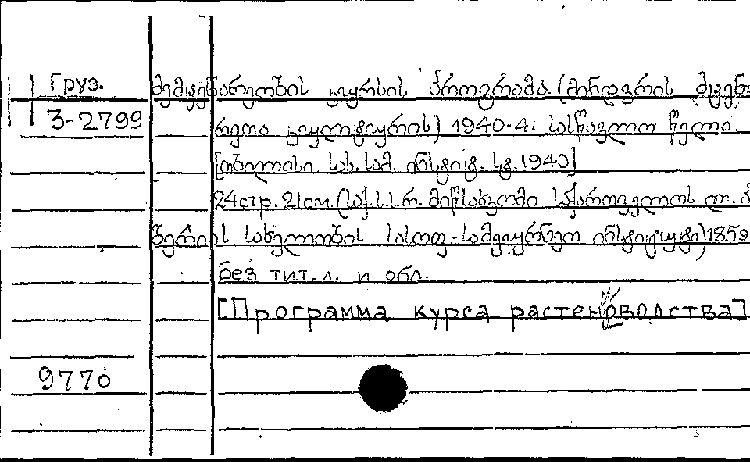 Груз.
3-2799
მემცენარეობის კურსის პროგრამა (მინდვრის მცენა-
რეთა კულტურის) 1940-41 სასწავლო წელი
[თბილისი. სას. სამ. ინსტიტ. სტ. 1940]
24 стр. 21 см. (საქ.ს.ს.რ. მიწსახკომი საქართველოს ლ. ბ
ერიას სახელობის სასოფ.-სამეურნეო ინსტიტუტი) 1859
без тит. л. и обл.
[Программа курса растеноводства]
9770